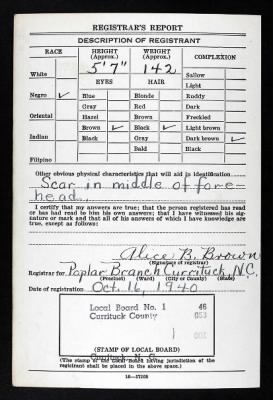 REGISTRAR'S REPORT
DESCRIPTION OF REGISTRANT
RACE HEIGHT (Approx.) WEIGHT (Approx.) COMPLEXION
5'7" 142
White Sallow
EYES HAIR Light
Negro ✓ Blue Blonde Ruddy
Gray Red Dark
Oriental Hazel Brown Freckled
Brown ✓ Black ✓ Light brown
Indian Black Gray Dark brown ✓
Bald Black
Filipino
Other obvious physical characteristics that will aid in identification
Scar in middle of fore-
head.
I certify that my answers are true; that the person registered has read
or has had read to him his own answers; that I have witnessed his sig-
nature or mark and that all of his answers of which I have knowledge are
true, except as follows:
Alice B. Brown
(Signature of registrar)
Registrar for Poplar Branch Currituck, N.C.
(Precinct) (Ward) (City or county) (State)
Date of registration Oct. 16, 1940
Local Board No. 1 46
Currituck County 053
1
001
Currituck, N. C.
(STAMP OF LOCAL BOARD)
(The stamp of the Local Board having jurisdiction of the
registrant shall be placed in the above space.)